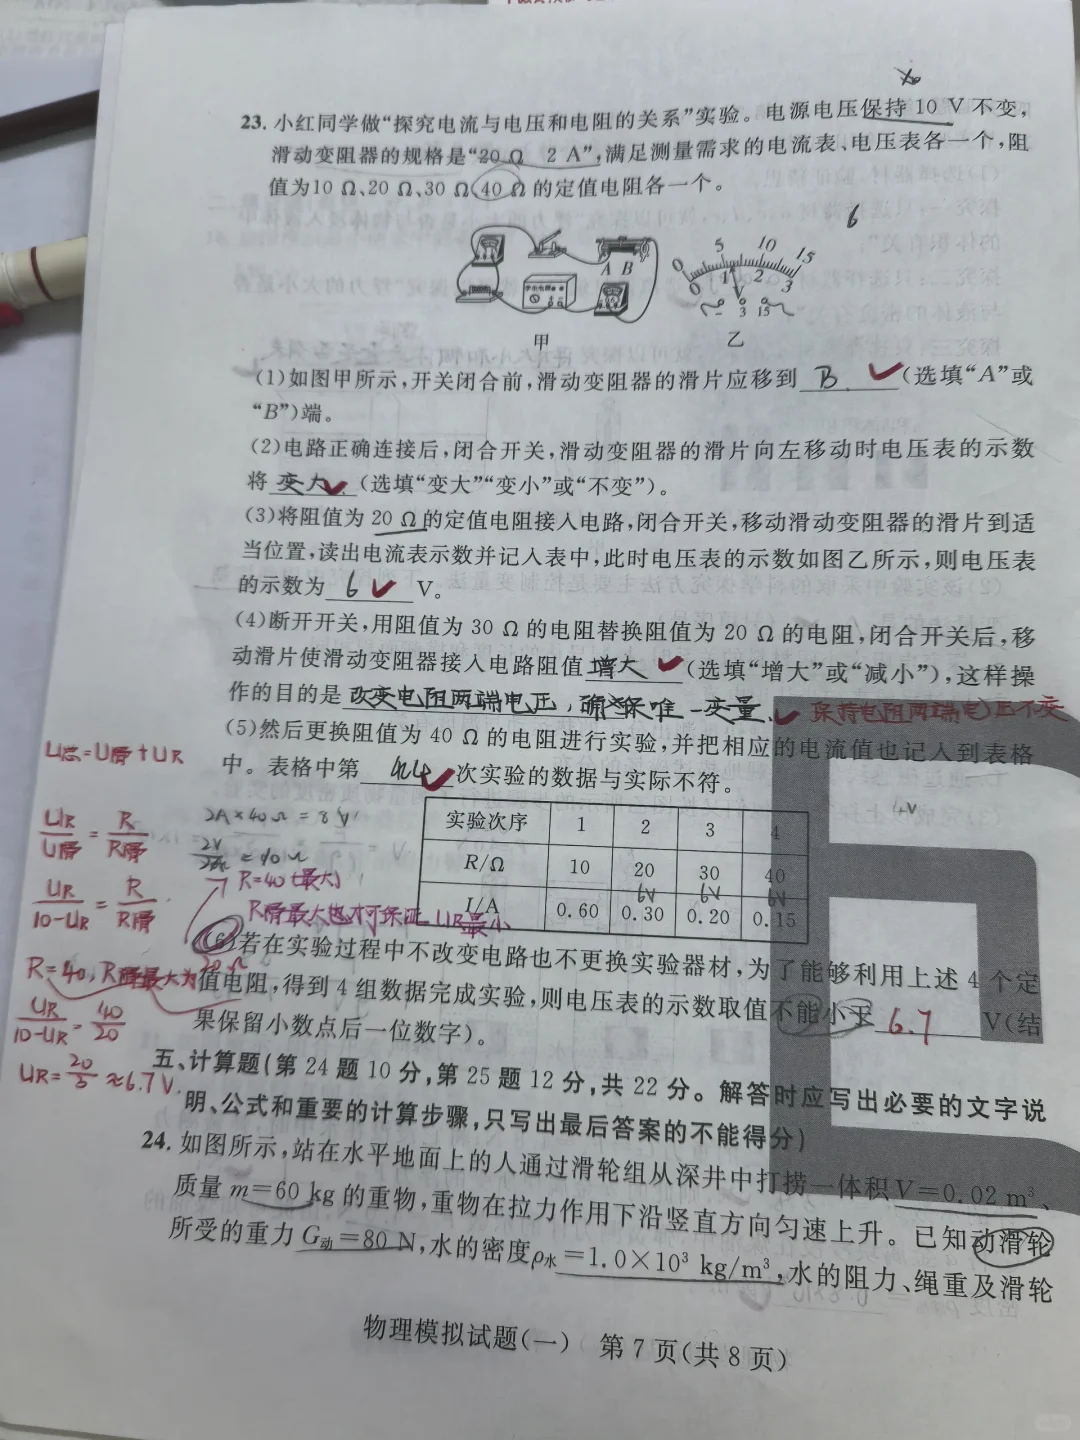 23. 小红同学做“探究电流与电压和电阻的关系”实验。电源电压保持 10 V 不变,
滑动变阻器的规格是“20 Ω 2 A”,满足测量需求的电流表、电压表各一个,阻
值为10 Ω、20 Ω、30 Ω、40 Ω 的定值电阻各一个。
6
A B
甲
0 5 10 15
0 1 2 3
- 3 15
乙
(1)如图甲所示,开关闭合前,滑动变阻器的滑片应移到 B (选填“A”或
“B”)端。
(2)电路正确连接后,闭合开关,滑动变阻器的滑片向左移动时电压表的示数
将 变大 (选填“变大”“变小”或“不变”)。
(3)将阻值为 20 Ω 的定值电阻接入电路,闭合开关,移动滑动变阻器的滑片到适
当位置,读出电流表示数并记入表中,此时电压表的示数如图乙所示,则电压表
的示数为 6 V。
(4)断开开关,用阻值为 30 Ω 的电阻替换阻值为 20 Ω 的电阻,闭合开关后,移
动滑片使滑动变阻器接入电路阻值 增大 (选填“增大”或“减小”),这样操
作的目的是 改变电阻两端电压, 确保唯一变量 保持电阻两端电压不变
(5)然后更换阻值为 40 Ω 的电阻进行实验,并把相应的电流值也记入到表格
中。表格中第 4 次实验的数据与实际不符。
U总=U滑+UR
UR/U滑 = R/R滑
2A×40Ω=8V
UR/10-UR = R/R滑
R=40(最大)
R滑最大也才可保证 UR最小
4V
实验次序 1 2 3 4
R/Ω 10 20 30 40
6V 6V 6V
I/A 0.60 0.30 0.20 0.15
(6)若在实验过程中不改变电路也不更换实验器材,为了能够利用上述 4 个定
20Ω
R=40,R滑最大为
值电阻,得到 4 组数据完成实验,则电压表的示数取值不能小于 6.7 V(结
果保留小数点后一位数字)。
UR/10-UR = 40/20
UR=20/3≈6.7V.
五、计算题(第 24 题 10 分,第 25 题 12 分,共 22 分。解答时应写出必要的文字说
明、公式和重要的计算步骤,只写出最后答案的不能得分)
24. 如图所示,站在水平地面上的人通过滑轮组从深井中打捞一体积 V=0.02 m³、
质量 m=60 kg 的重物,重物在拉力作用下沿竖直方向匀速上升。已知动滑轮
所受的重力 G动=80 N,水的密度ρ水=1.0×10³ kg/m³,水的阻力、绳重及滑轮
物理模拟试题(一) 第 7 页(共 8 页)